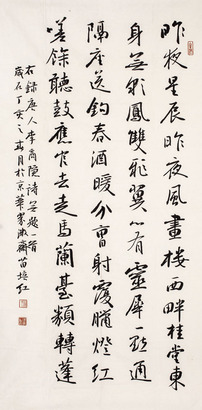 昨夜星辰昨夜風畫樓西畔桂堂東
身無彩鳳雙飛翼心有靈犀一點通
隔座送鈎春酒暖分曹射覆臘燈紅
嗟餘聽鼓應官去走馬蘭臺類轉蓬
右錄唐人李商隱詩無題一首
歲在丁亥之春月於京華齋苗培紅